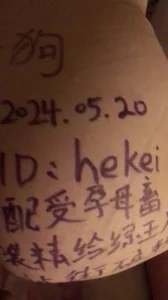 狗
2024.05.20
ID:hekei
配受孕母畜
装精给绿王